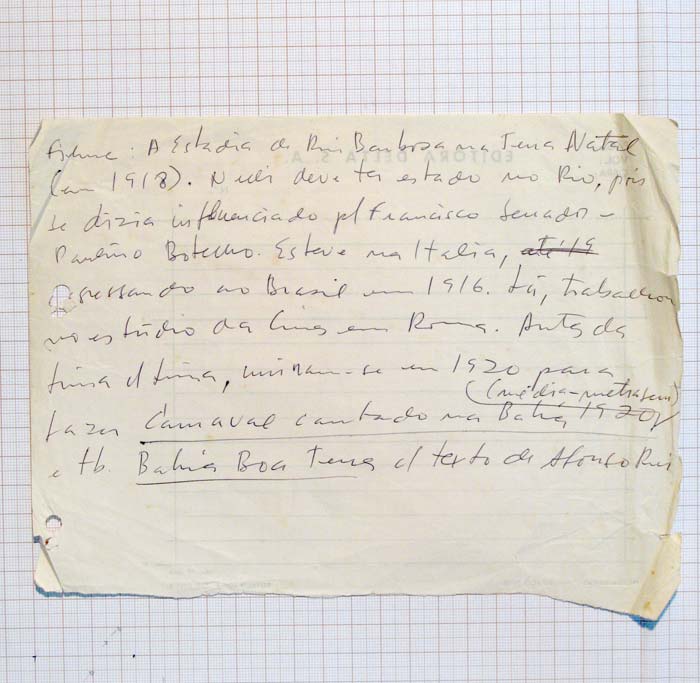 filme: A Estadia de Rui Barbosa na Terra Natal
(em 1918). Nelli deve ter estado no Rio, pois
se dizia influenciado p/ Francisco Serrador –
Paulino Botelho. Esteve na Italia, até 19
regressando ao Brasil em 1916. Lá, trabalhou
no estúdio da Cines em Roma. Antes da
uniram-se em 1920 para
(média-metragem)
fazer Carnaval cantado na Bahia 1920
e tb. Bahia Boa Terra c/ texto de Afonso Rui
EDITORA DELTA S. A.